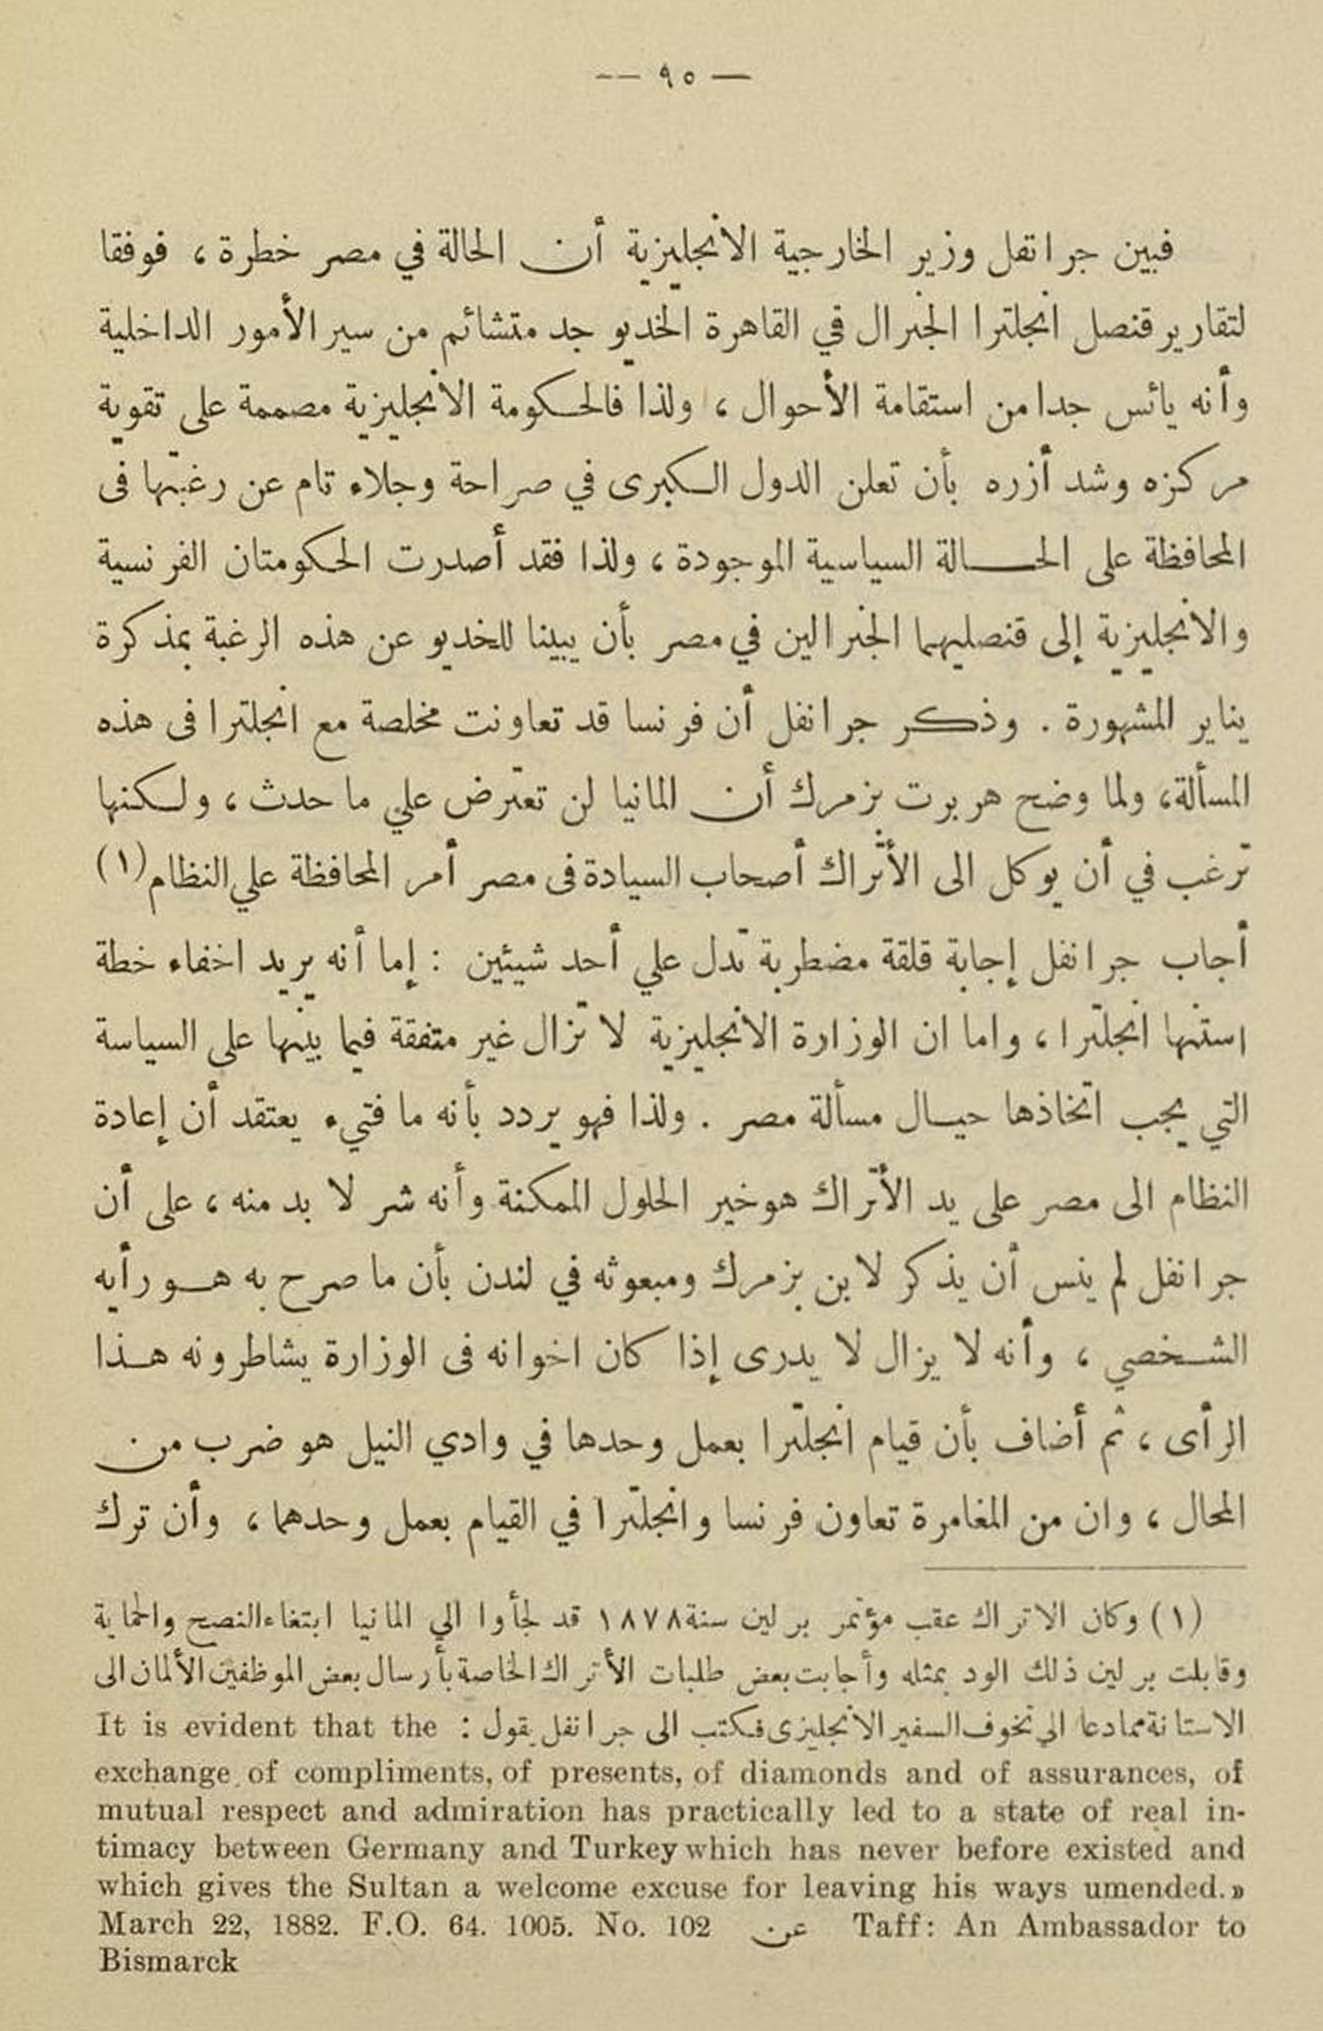 — ٩٥ —
فبين جرانفل وزير الخارجية الانجليزية أن الحالة في مصر خطرة ، فوفقا
لتقارير قنصل انجلترا الجنرال في القاهرة الخديو جد متشائم من سير الأمور الداخلية
وأنه يائس جدا من استقامة الأحوال ، ولذا فالحكومة الانجليزية مصممة على تقوية
مركزه وشد أزره بأن تعلن الدول الكبرى في صراحة وجلاء تام عن رغبتها فى
المحافظة على الحالة السياسية الموجودة ، ولذا فقد أصدرت الحكومتان الفرنسية
والانجليزية إلى قنصليهما الجنرالين في مصر بأن يبينا للخديو عن هذه الرغبة بمذكرة
يناير المشهورة . وذكر جرانفل أن فرنسا قد تعاونت مخلصة مع انجلترا فى هذه
المسألة، ولما وضح هربرت بزمرك أن المانيا لن تعترض علي ما حدث ، ولكنها
ترغب في أن يوكل الى الأتراك أصحاب السيادة فى مصر أمر المحافظة علي النظام (١)
أجاب جرانفل إجابة قلقة مضطربة تدل علي أحد شيئين : إما أنه يريد اخفاء خطة
استنها انجلترا ، واما ان الوزارة الانجليزية لا تزال غير متفقة فيما بينها على السياسة
التي يجب اتخاذها حيال مسألة مصر . ولذا فهو يردد بأنه ما فتيء يعتقد أن إعادة
النظام الى مصر على يد الأتراك هو خير الحلول الممكنة وأنه شر لا بد منه ، على أن
جرانفل لم ينس أن يذكر لابن بزمرك ومبعوثه في لندن بأن ما صرح به هو رأيه
الشخصي ، وأنه لا يزال لا يدرى إذا كان اخوانه فى الوزارة يشاطرونه هذا
الرأى ، ثم أضاف بأن قيام انجلترا بعمل وحدها في وادي النيل هو ضرب من
المحال ، وان من المغامرة تعاون فرنسا وانجلترا في القيام بعمل وحدهما ، وأن ترك
(١) وكان الاتراك عقب مؤتمر برلين سنة ١٨٧٨ قد لجأوا الي المانيا ابتغاء النصح والحماية
وقابلت برلين ذلك الود بمثله وأجابت بعض طلبات الأتراك الخاصة بأرسال بعض الموظفين الألمان الى
الاستانة مما دعا الي تخوف السفير الانجليزى فكتب الى جرانفل يقول : It is evident that the
exchange of compliments, of presents, of diamonds and of assurances, of
mutual respect and admiration has practically led to a state of real in-
timacy between Germany and Turkey which has never before existed and
which gives the Sultan a welcome excuse for leaving his ways umended.»
March 22, 1882. F.O. 64. 1005. No. 102 عن Taff: An Ambassador to
Bismarck